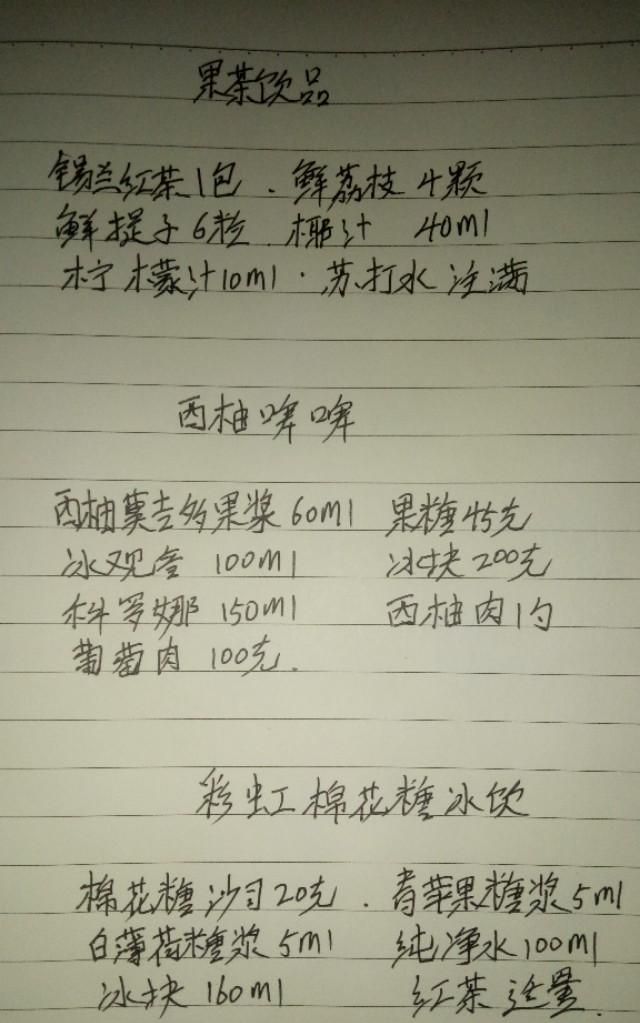 果茶饮品
锡兰红茶1包.鲜荔枝4颗
鲜提子6粒.椰汁 40ml
柠檬汁10ml.苏打水注满
西柚啤啤
西柚莫吉多果浆60ml 果糖45克
冰观音 100ml 冰块200克
科罗娜 150ml 西柚肉1勺
葡萄肉 100克.
彩虹棉花糖冰饮
棉花糖沙司20克.青苹果糖浆5ml
白薄荷糖浆5ml 纯净水100ml
冰块160ml 红茶适量.